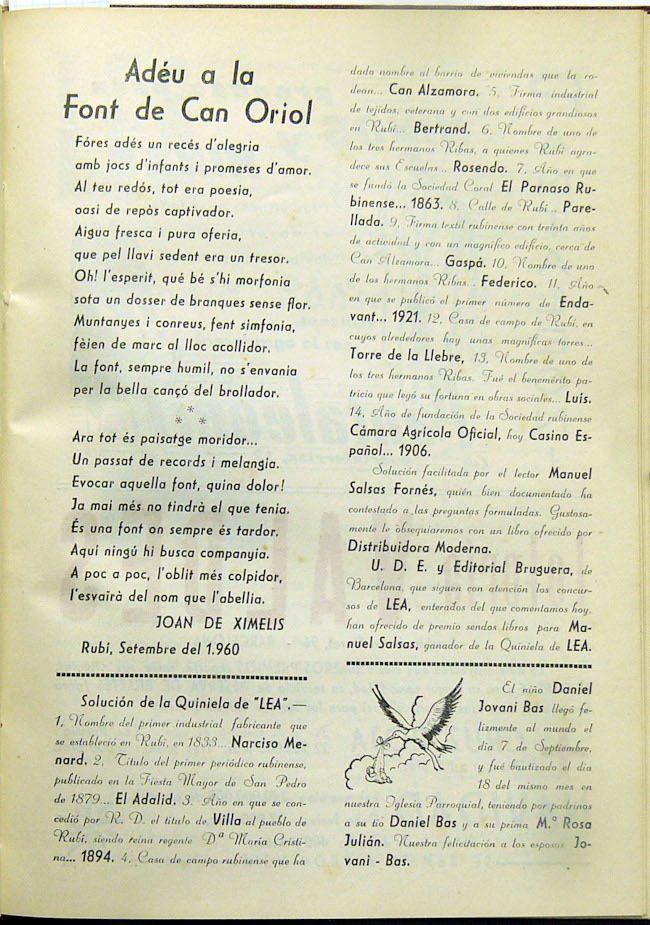 Adéu a la
Font de Can Oriol
Fóres adés un recés d'alegria
amb jocs d'infants i promeses d'amor.
Al teu redós, tot era poesia,
oasi de repòs captivador.
Aigua fresca i pura oferia,
que pel llavi sedent era un tresor.
Oh! l'esperit, qué bé s'hi morfonia
sota un dosser de branques sense flor.
Muntanyes i conreus, fent simfonia,
fèien de marc al lloc acollidor.
La font, sempre humil, no s'envania
per la bella cançó del brollador.
*
* *
Ara tot és paisatge moridor...
Un passat de records i melangia.
Evocar aquella font, quina dolor!
Ja mai més no tindrà el que tenia.
És una font on sempre és tardor.
Aquí ningú hi busca companyia.
A poc a poc, l'oblit més colpidor,
l'esvaïrà del nom que l'abellia.
JOAN DE XIMELIS
Rubí, Setembre del 1.960
Solución de la Quiniela de "LEA".—
1, Nombre del primer industrial fabricante que
se estableció en Rubí, en 1833... Narciso Me-
nard. 2, Título del primer periódico rubinense,
publicado en la Fiesta Mayor de San Pedro
de 1879... El Adalid. 3. Año en que se con-
cedió por R. D. el título de Villa al pueblo de
Rubí, siendo reina regente Dª María Cristi-
na... 1894. 4, Casa de campo rubinense que ha
dado nombre al barrio de viviendas que la ro-
dean... Can Alzamora. 5, Firma industrial
de tejidos, veterana y con dos edificios grandiosos
en Rubí... Bertrand. 6, Nombre de uno de
los tres hermanos Ribas, a quienes Rubí agra-
dece sus Escuelas... Rosendo. 7, Año en que
se fundó la Sociedad Coral El Parnaso Ru-
binense... 1863. 8, Calle de Rubí... Pare-
llada. 9, Firma textil rubinense con treinta años
de actividad y con un magnífico edificio, cerca de
Can Alzamora... Gaspá. 10, Nombre de uno
de los hermanos Ribas... Federico. 11, Año
en que se publicó el primer número de Enda-
vant... 1921. 12, Casa de campo de Rubí, en
cuyos alrededores hay unas magníficas torres...
Torre de la Llebre, 13, Nombre de uno de
los tres hermanos Ribas. Fué el benemérito pa-
tricio que legó su fortuna en obras sociales... Luis.
14, Año de fundación de la Sociedad rubinense
Cámara Agrícola Oficial, hoy Casino Es-
pañol... 1906.
Solución facilitada por el lector Manuel
Salsas Fornés, quién bien documentado ha
contestado a las preguntas formuladas. Gustosa-
mente le obsequiaremos con un libro ofrecido por
Distribuidora Moderna.
U. D. E. y Editorial Bruguera, de
Barcelona, que siguen con atención los concur-
sos de LEA, enterados del que comentamos hoy,
han ofrecido de premio sendos libros para Ma-
nuel Salsas, ganador de la Quiniela de LEA.
El niño Daniel
Jovani Bas llegó fe-
lizmente al mundo el
día 7 de Septiembre,
y fué bautizado el día
18 del mismo mes en
nuestra Iglesia Parroquial, teniendo por padrinos
a su tío Daniel Bas y a su prima M.ª Rosa
Julián. Nuestra felicitación a los esposos Jo-
vani - Bas.